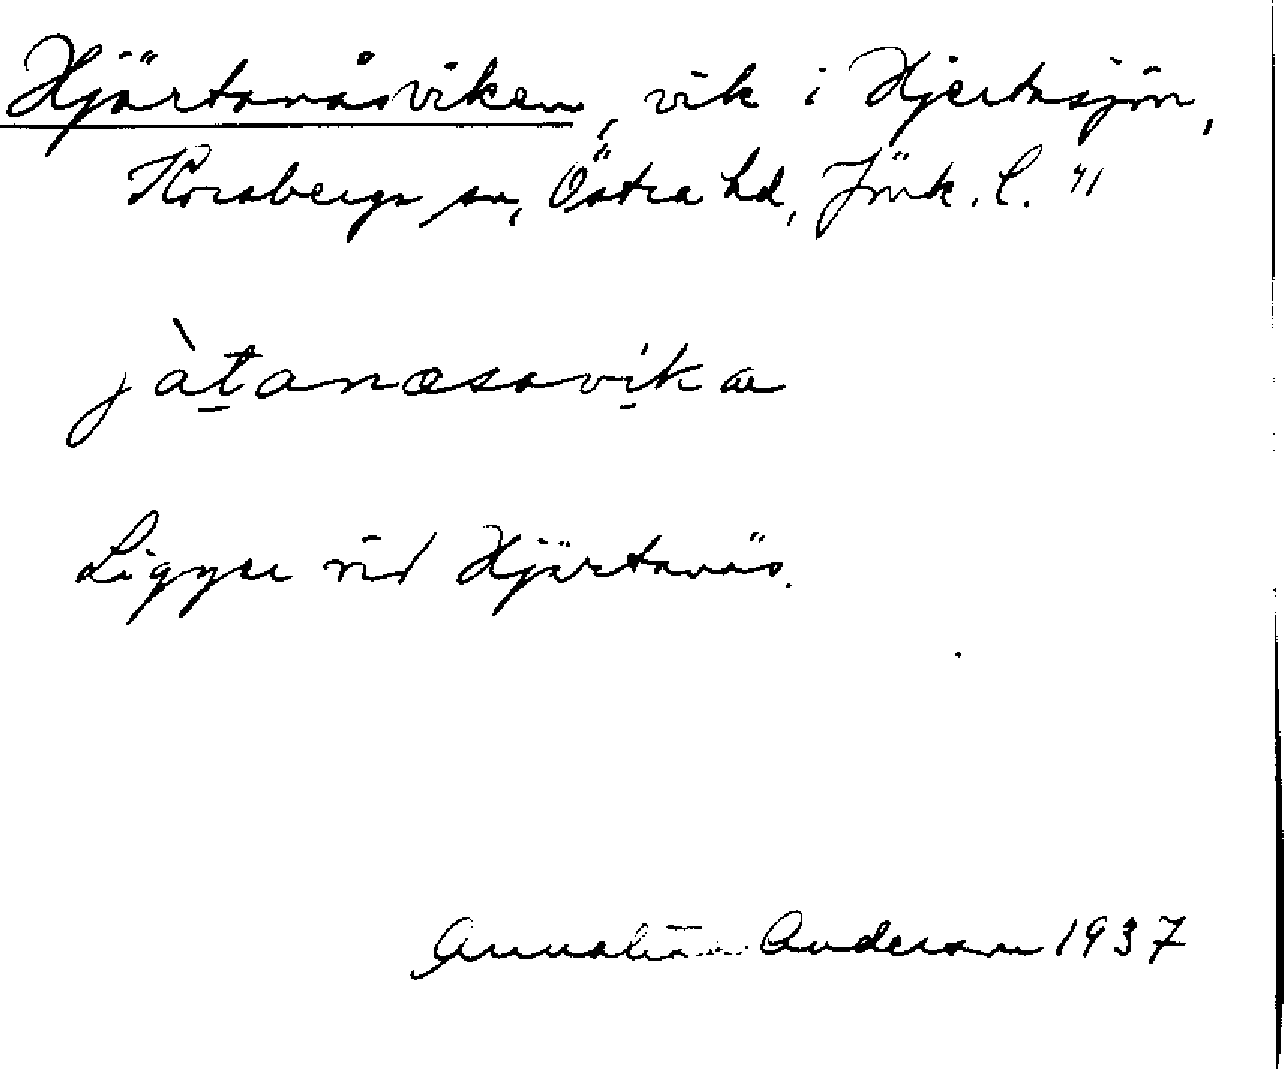 Hjärtanäsviken, vik i Hjertasjön,
Korsberga sn, Östra hd, Jönk. l. 41
jàtanæsavika
Ligger vid Hjärtanäs.
Andersson 1937